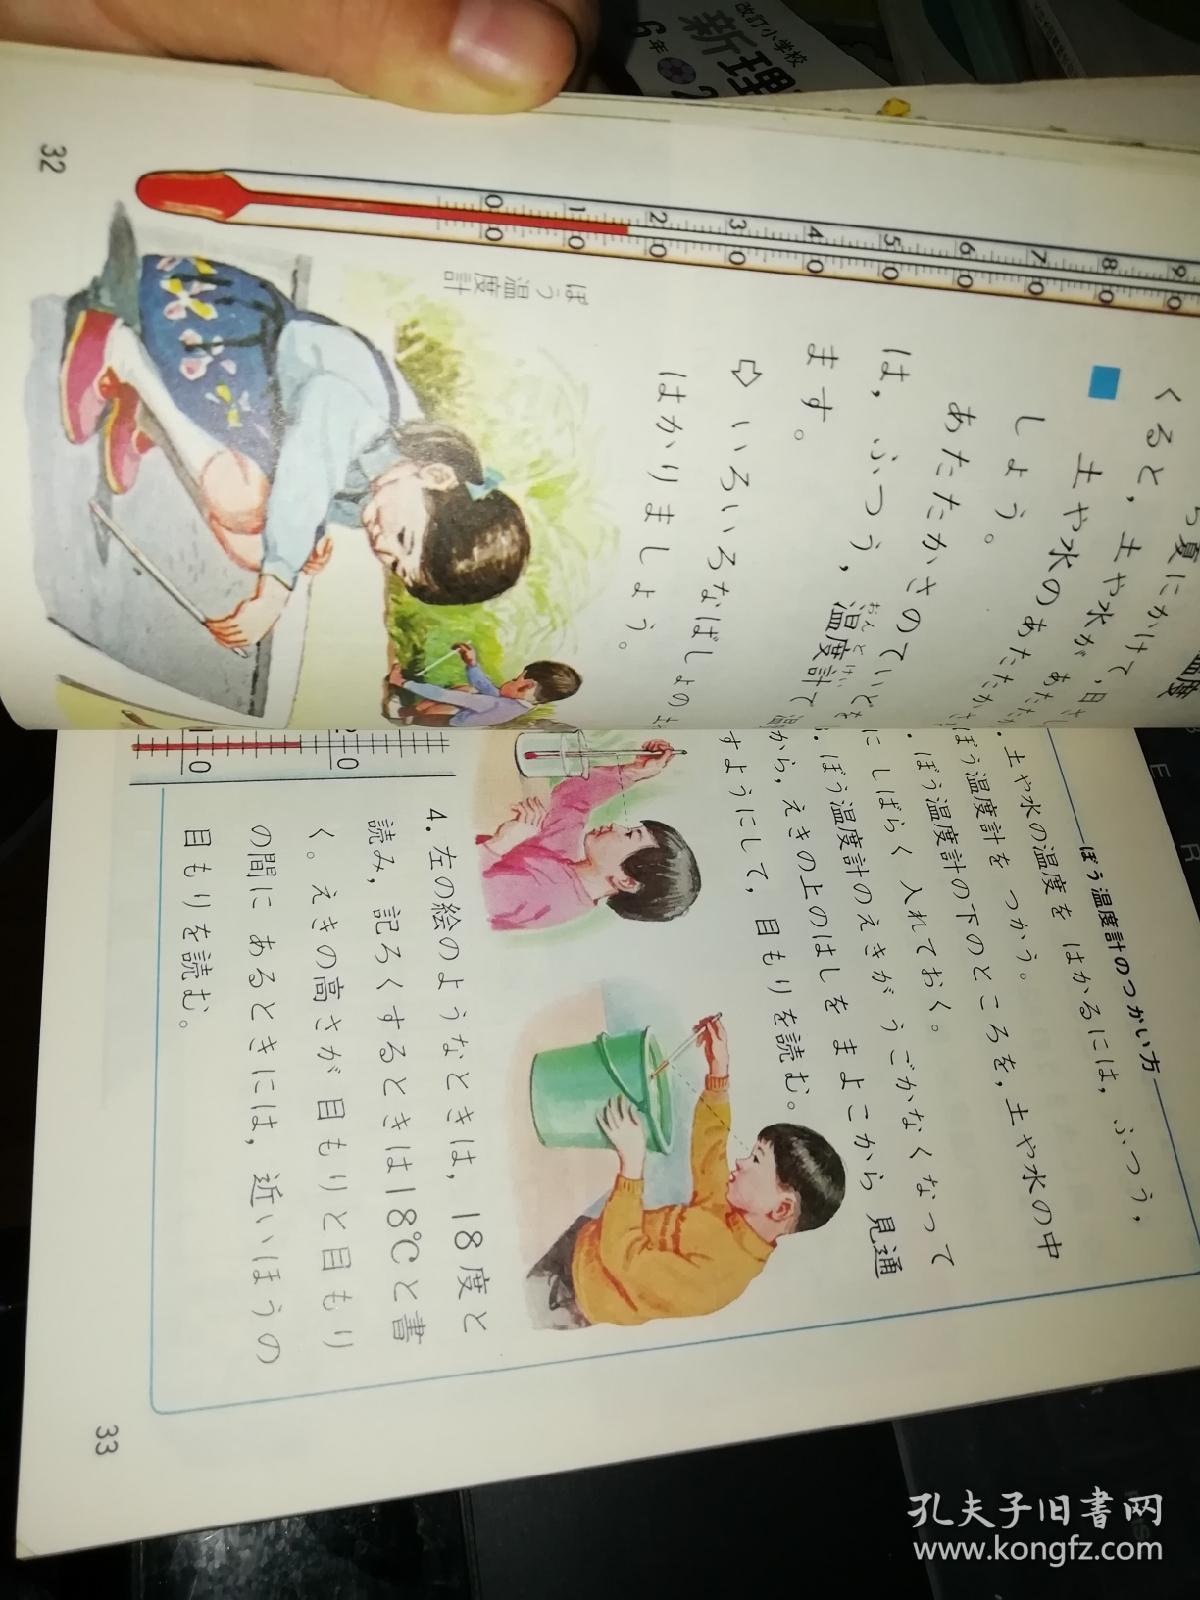 改訂小学校
新理
6年 2
ら夏にかけて,日
くると,土や水が あたた
土や水のあたたか
しょう。
あたたかさのていどを
は,ふつう,温度計で
おんどけい
ます。
⇨ いろいろなばしょの
はかりましょう。
ぼう温度計
0 10 20 30 40 50 60 70 80 90
32
ぼう温度計のつかい方
土や水の温度を はかるには,ふつう,
ぼう温度計を つかう。
ぼう温度計の下のところを,土や水の中
に しばらく 入れておく。
ぼう温度計のえきが うごかなくなって
から,えきの上のはしを まよこから 見通
すようにして,目もりを読む。
4. 左の絵のようなときは,18度と
読み,記ろくするときは18℃と書
く。えきの高さが 目もりと目もり
の間に あるときには,近いほうの
目もりを読む。
10 20
33
孔夫子旧书网
www.kongfz.com